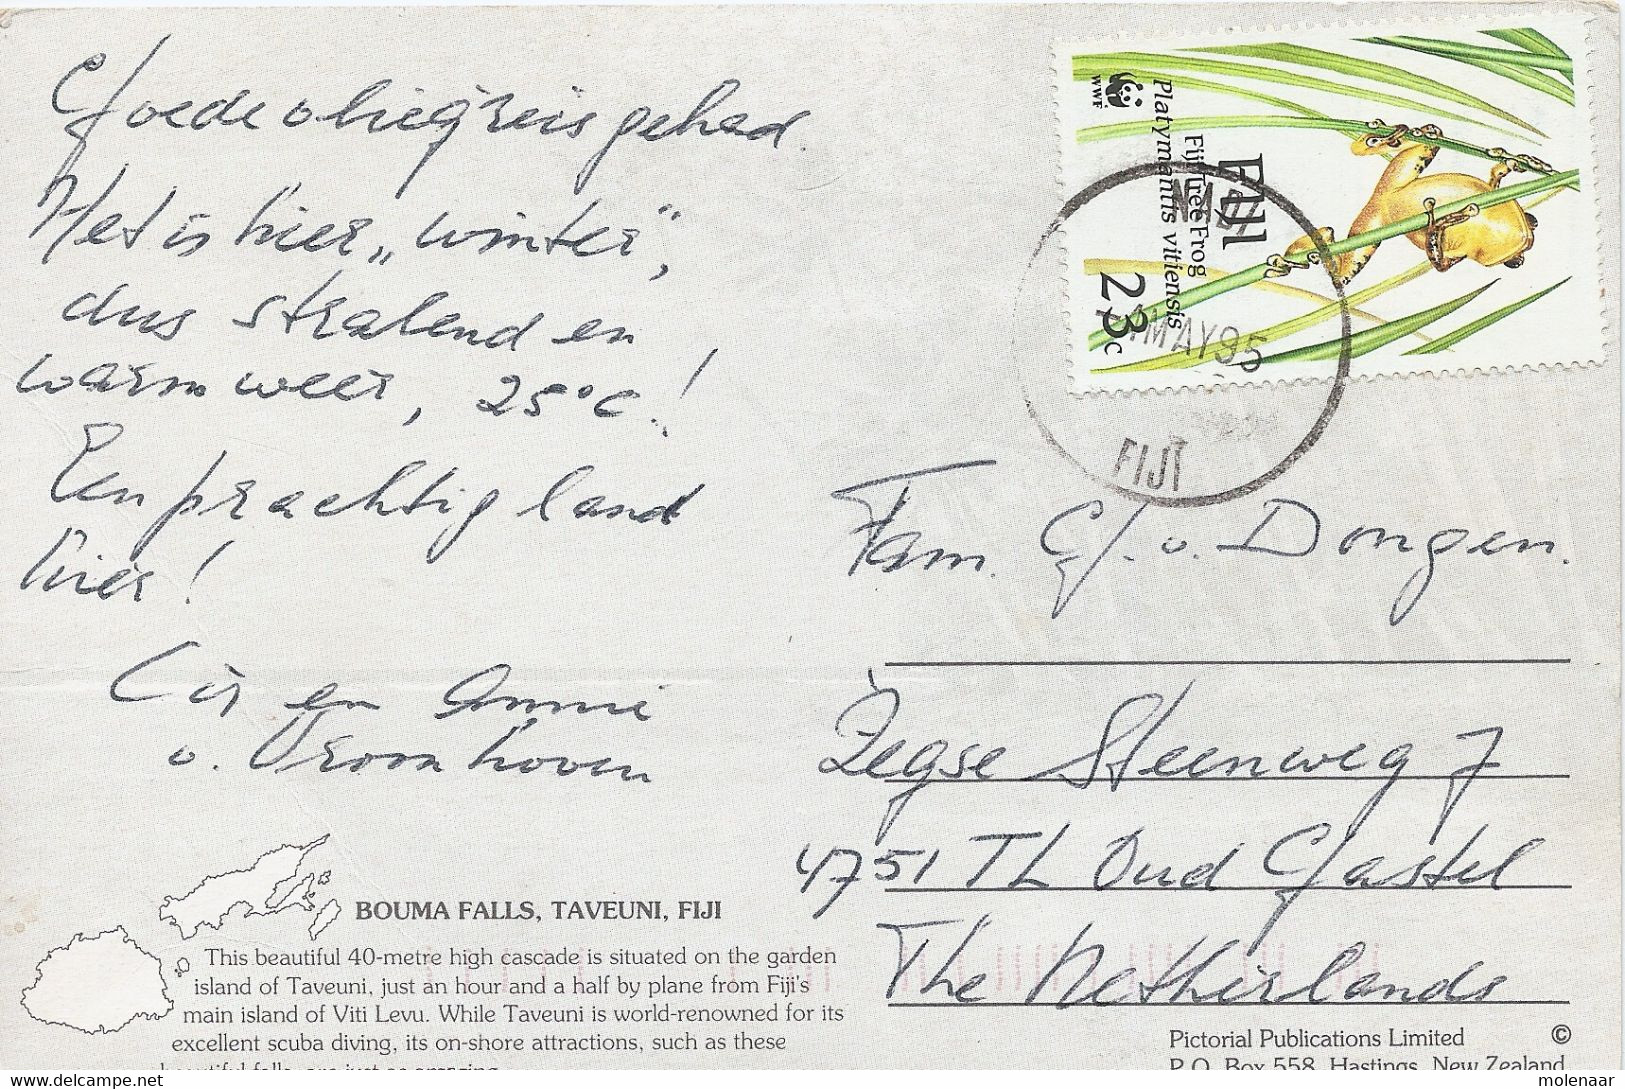 Goede vliegreis gehad.
Het is hier „winter",
dus stralend en
warm weer, 25°C!
Een prachtig land
hier!
Cis en Annie
v. Vroonhoven
WWF
Platymantis vitiensis
Fiji Tree Frog
FIJI
23c
NADI
MAY 95
FIJI
Fam. G. v. Dongen.
Zegse Steenweg 7
4751 TL Oud Gastel
The Netherlands
BOUMA FALLS, TAVEUNI, FIJI
This beautiful 40-metre high cascade is situated on the garden
island of Taveuni, just an hour and a half by plane from Fiji's
main island of Viti Levu. While Taveuni is world-renowned for its
excellent scuba diving, its on-shore attractions, such as these
beautiful falls, are just as amazing.
Pictorial Publications Limited ©
P.O. Box 558, Hastings, New Zealand
https://www.delcampe.net
molenaar